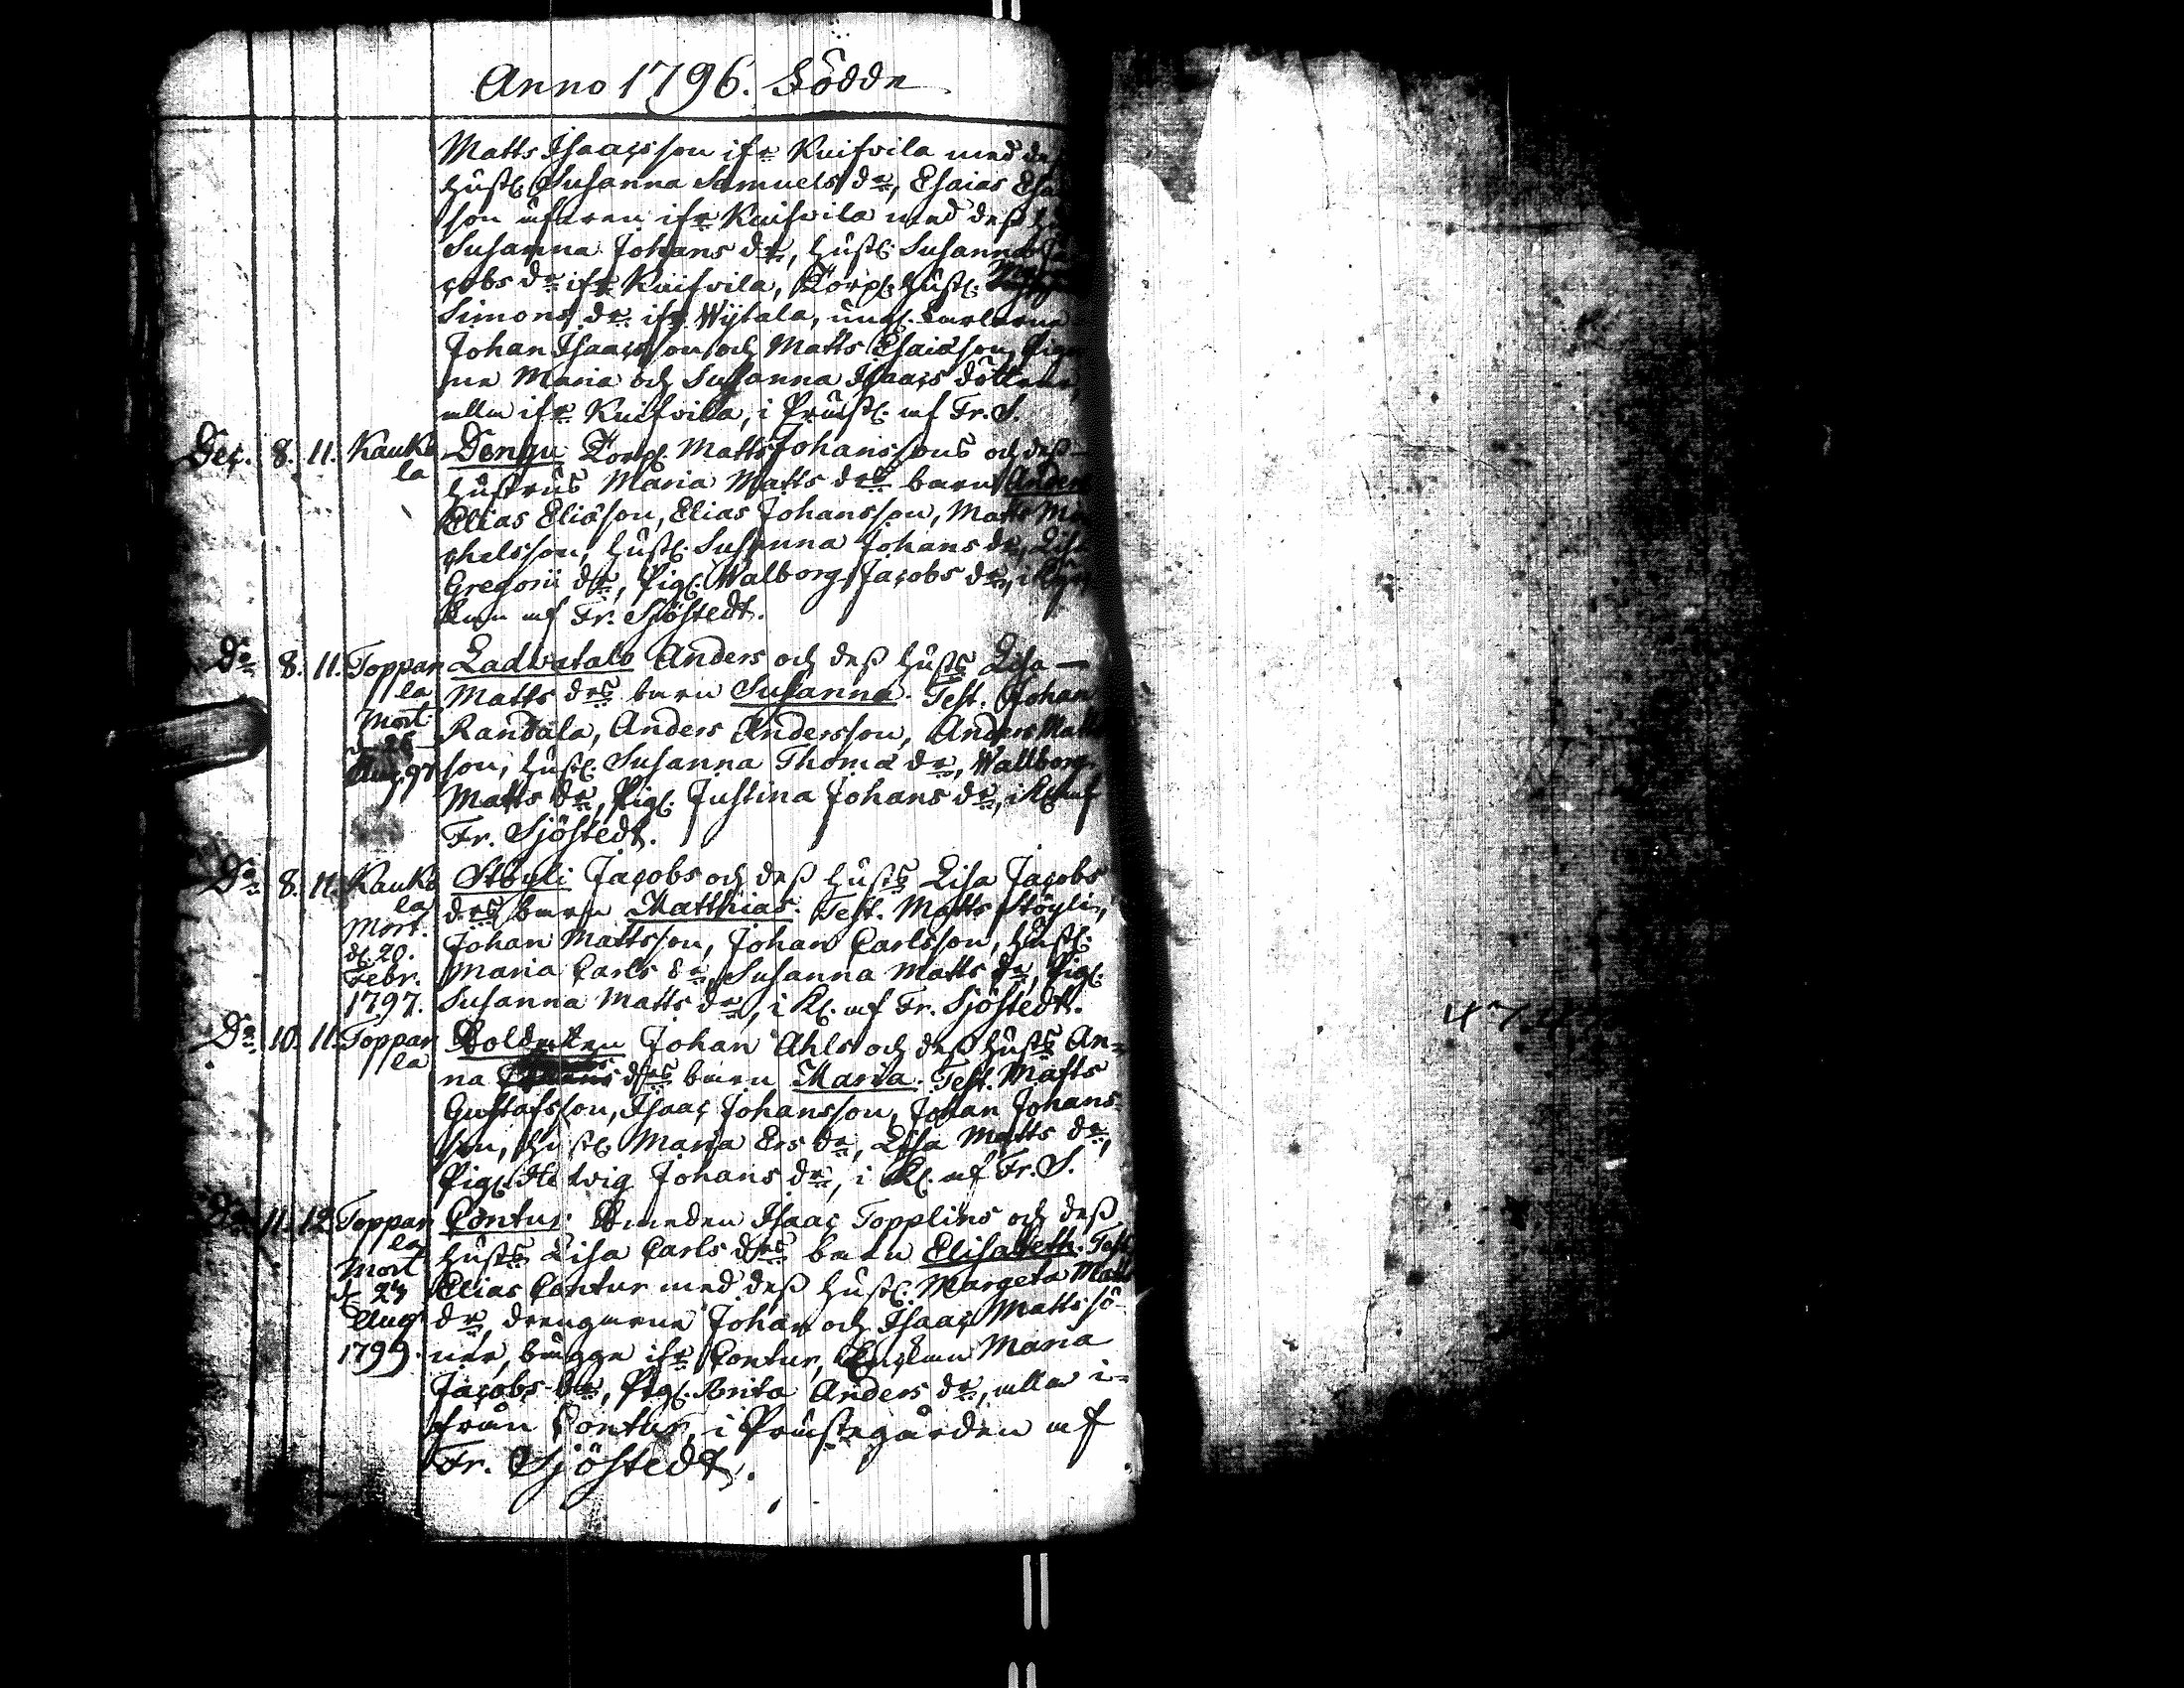 Anno 1796. Födde
Matts Isaacsson ifr Knifvila med deß
hust. Susanna Samuels dr, Esaias Esai
son ifr Knifvila med deß
Susanna Johans dr, hust. Susanna Ja
cobs dr ifr Knifvila, Torp. hust.
Simons dr ifr Wÿtala, ung. karlarna
Johan Isaacsson och Matts Esaiæson, Pigor
ne Maria och Susanna Isaacs döttrar,
alla ifr Knifvila, i Präst. af Fr. S.
Dec. 8. 11. Kauko
la
Torp. Matts Johanssons och deß
hustrus Maria Matts drs barn Anders
Elias Eliæson, Elias Johansson, Matts Mi
chelsson, hust. Susanna Johans dr, Lisa
Gregorii dr, Pig. Walborg Jacobs dr, i Kyr
kan af Fr. Sjöstedt.
Do 8. 11. Toppar
la
Mort.
26
Aug. 97
Ladvatalo Anders och deß husts Lisa —
Matts drs barn Susanna. Test. Johan
Randala, Anders Andersson, Anders Matts
son, hust. Susanna Thomæ dr, Wallborg
Matts dr, Pig. Justina Johans dr, i K. af
Fr. Sjöstedt.
Do 8. 11. Kauko
la
Mort.
d. 20.
Febr.
1797.
Stöyli Jacobs och deß husts Lisa Jacobs
drs barn Matthias. Test. Matts Stöyli,
Johan Mattsson, Johan Carlsson, hust.
Maria Carls dr, Susanna Matts dr, Pig.
Susanna Matts dr, i K. af Fr. Sjöstedt.
Do 10. 11. Toppar
la
Soldaten Johan Ahls och deß husts An=
na drs barn Maria. Test. Matts
Gustafsson, Isaac Johansson, Johan Johans=
son, hust. Maria Ers dr, Lisa Matts dr,
Pig. Hedwig Johans dr, i K. af Fr. S.
Do 11. 12. Toppar
la
Mort
d. 27
Aug.
1799.
Contur Smeden Isaac Topplins och deß
husts Lisa Carls drs barn Elisabeth. Test.
Elias Contur med deß hust. Margeta Matts
dr, drengarne Johan och Isaac Matts sö=
ner, bägge ifr Contur, Enkan Maria
Jacobs dr, Pig. Brita Anders dr, alla i=
från Contur, i Prästegården af
Fr. Sjöstedt.